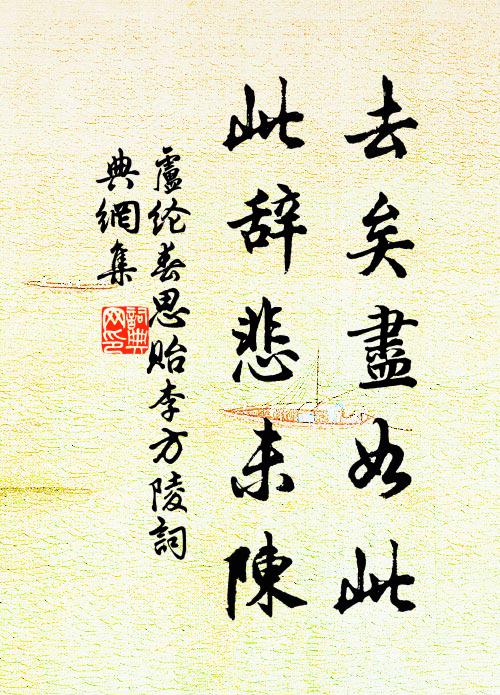 去矣盡如此
此辞悲未陳
盧纶春思貽李方陵詞
典網集
詞典
网印